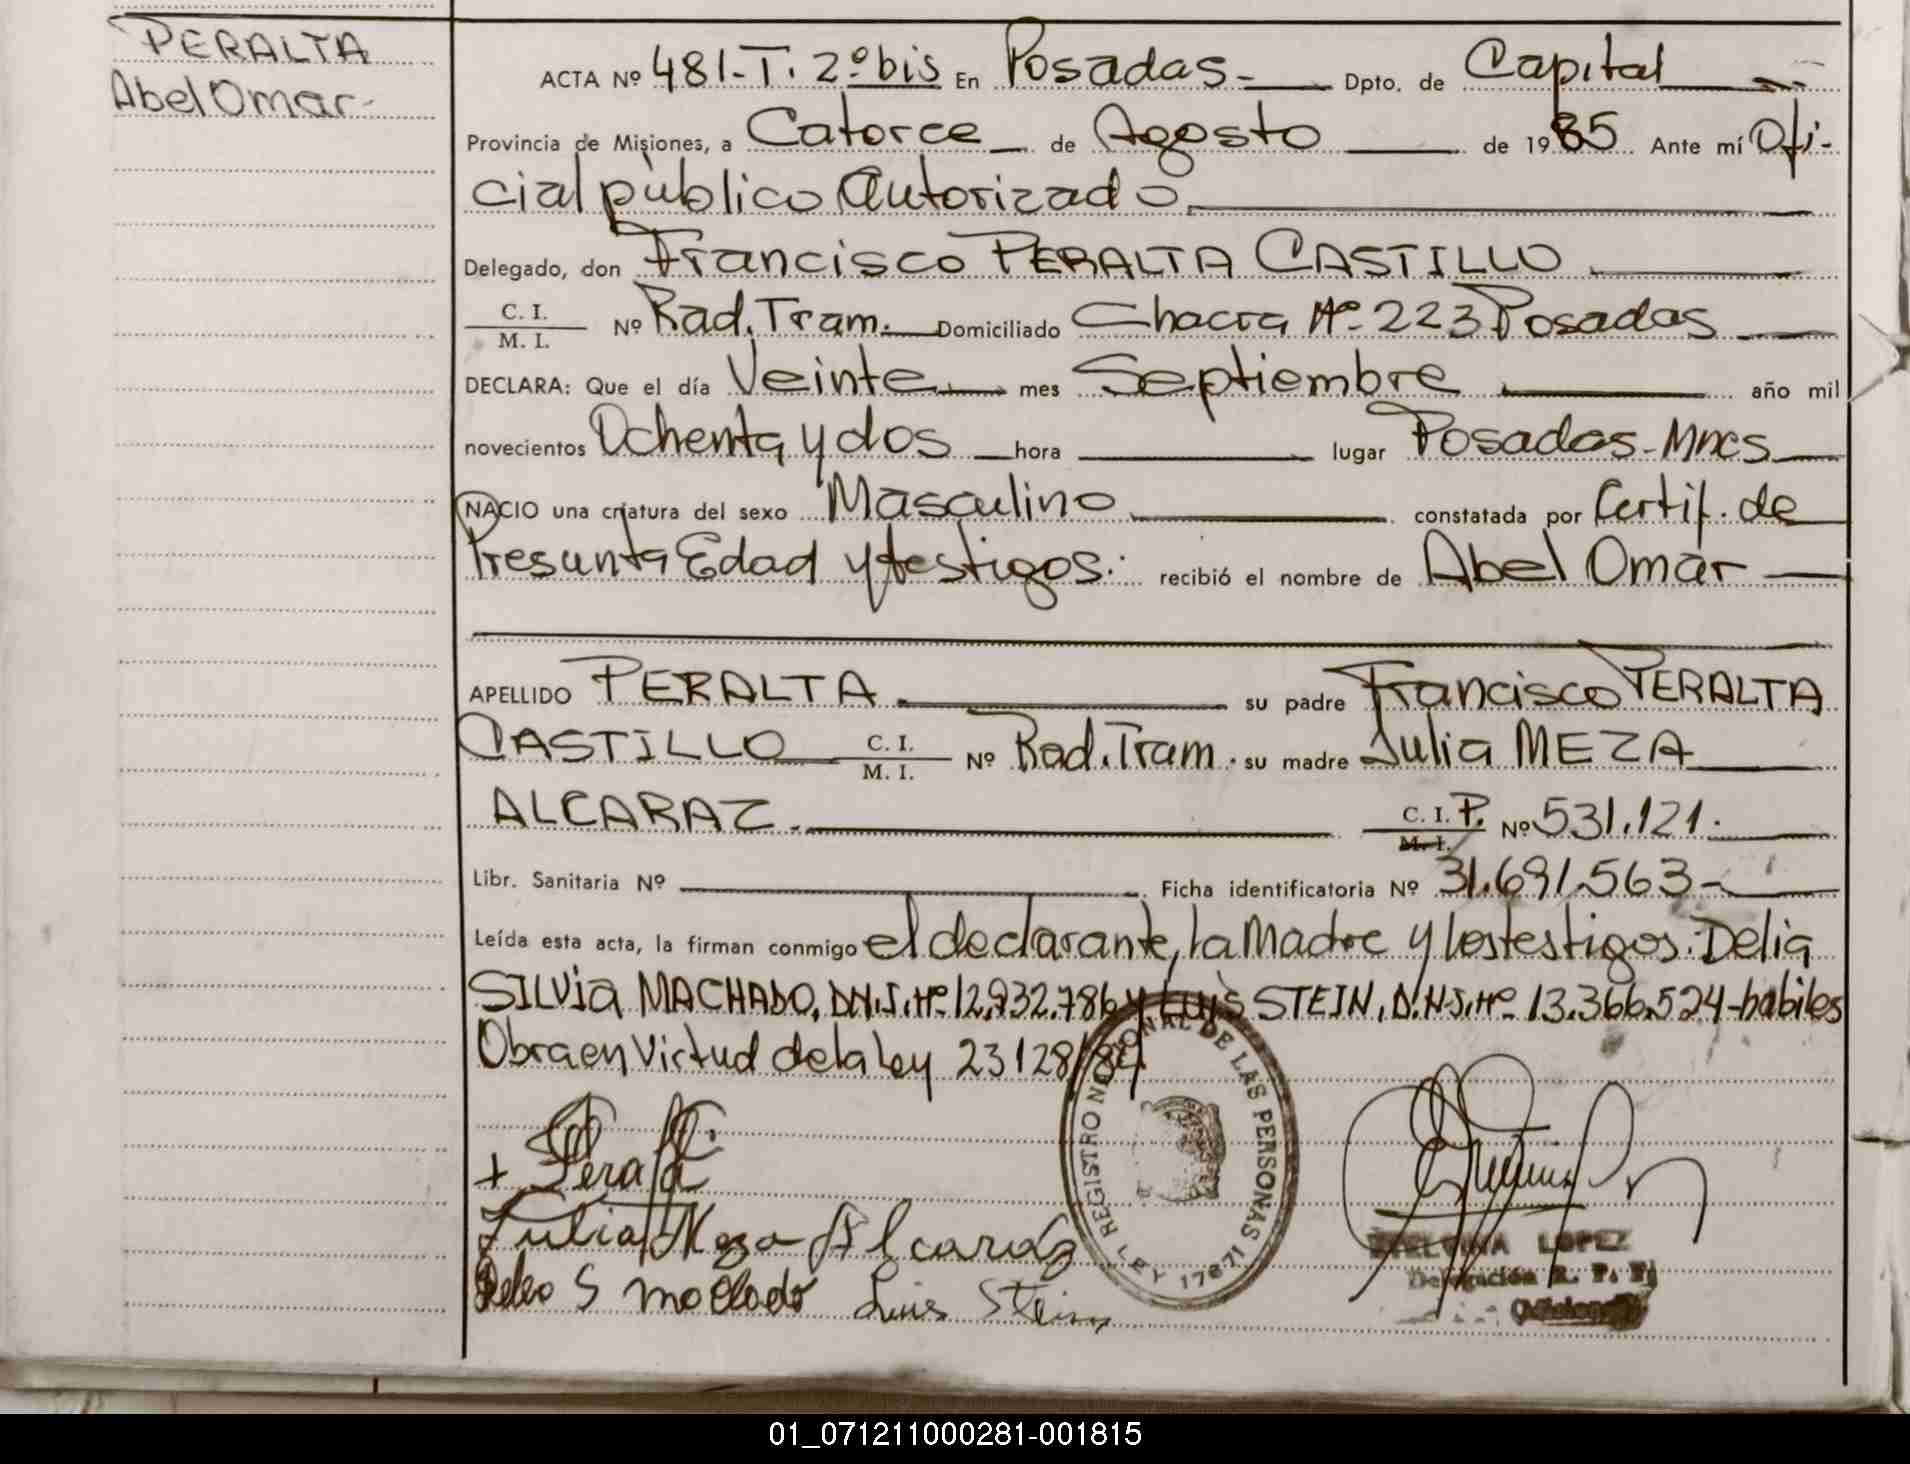 PERALTA
Abel Omar-
ACTA Nº 481-T. 2º bis En Posadas- Dpto. de Capital
Provincia de Misiones, a Catorce de Agosto de 1985 Ante mí Ofi-
cial público Autorizado
Delegado, don Francisco PERALTA CASTILLO
C. I.
M. I.
Nº Rad. Tram. Domiciliado Chacra Nº 223 Posadas
DECLARA: Que el día Veinte mes Septiembre año mil
novecientos Ochenta y dos hora lugar Posadas-Mnes
NACIO una criatura del sexo Masculino constatada por Certif. de
Presunta Edad y testigos. recibió el nombre de Abel Omar
APELLIDO PERALTA su padre Francisco PERALTA
CASTILLO C. I. M. I. Nº Rad. Tram. su madre Julia MEZA
ALCARAZ. C. I. P. M. I. Nº 531.121.
Libr. Sanitaria Nº Ficha identificatoria Nº 31.691.563-
Leída esta acta, la firman conmigo el declarante, la Madre y los testigos. Delia
SILVIA MACHADO, D.N.I. Nº 12.932.786 y LUIS STEIN, D.N.I. Nº 13.366.524-habiles
Obra en Virtud de la ley 23128/84
REGISTRO NACIONAL DE LAS PERSONAS
LEY 17671
+ Peralta
Julia Meza Alcaraz
Delia S Machado Luis Stein
LOPEZ
Delegación R. P. P.
(Misiones)
01_071211000281-001815